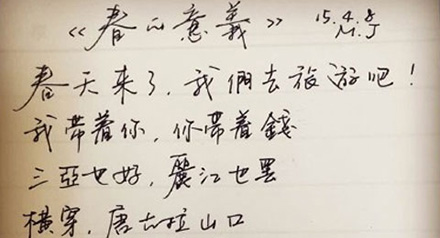 《春的意義》 15.4.8
M.J
春天来了，我們去旅游吧！
我带着你，你带着錢
三亞也好，麗江也罢
横穿，唐古拉山口